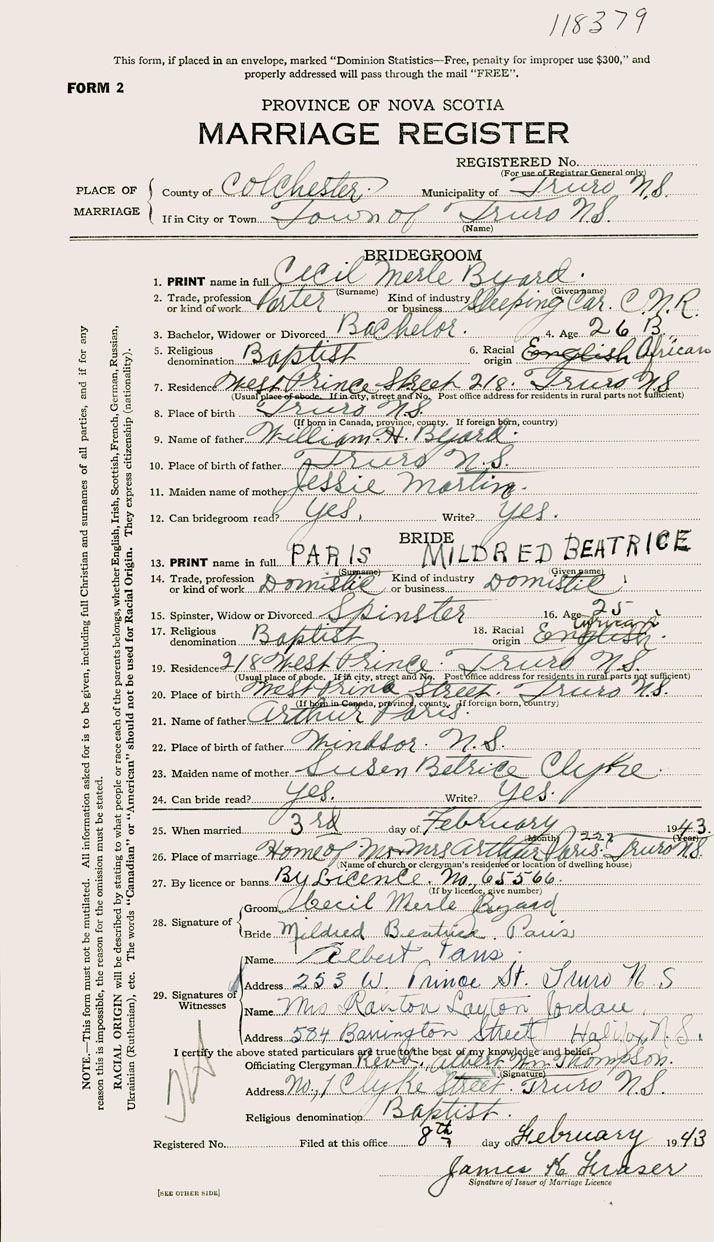 118379
This form, if placed in an envelope, marked "Dominion Statistics—Free, penalty for improper use $300," and
properly addressed will pass through the mail "FREE".
FORM 2
PROVINCE OF NOVA SCOTIA
MARRIAGE REGISTER
REGISTERED No.
(For use of Registrar General only)
PLACE OF MARRIAGE
County of Colchester. Municipality of Truro N.S.
If in City or Town Town of Truro N.S.
(Name)
BRIDEGROOM
1. PRINT name in full Cecil Merle Byard.
(Surname) (Given name)
2. Trade, profession or kind of work Porter Kind of industry or business Sleeping Car. C.N.R.
3. Bachelor, Widower or Divorced Bachelor. 4. Age 26 B.
5. Religious denomination Baptist 6. Racial origin English African
7. Residence West Prince Street 218. Truro N.S
(Usual place of abode. If in city, street and No. Post office address for residents in rural parts not sufficient)
8. Place of birth Truro N.S.
(If born in Canada, province, county. If foreign born, country)
9. Name of father William. H. Byard.
10. Place of birth of father Truro N.S.
11. Maiden name of mother Jessie Martin.
12. Can bridegroom read? Yes. Write? Yes.
BRIDE
13. PRINT name in full PARIS MILDRED BEATRICE
(Surname) (Given name)
14. Trade, profession or kind of work Domistic Kind of industry or business Domistic
15. Spinster, Widow or Divorced Spinster 16. Age 25
17. Religious denomination Baptist 18. Racial origin English. African
19. Residence 218 West Prince. Truro N.S.
(Usual place of abode. If in city, street and No. Post office address for residents in rural parts not sufficient)
20. Place of birth West Prince Street. Truro N.S.
(If born in Canada, province, county. If foreign born, country)
21. Name of father Arthur Paris.
22. Place of birth of father Windsor. N.S.
23. Maiden name of mother Susen Betrice Clyke.
24. Can bride read? Yes. Write? Yes.
25. When married 3rd day of February 1943.
(Month) (Year)
26. Place of marriage Home of Mr & Mrs Arthur Paris. 222 Truro N.S.
(Name of church or clergyman's residence or location of dwelling house)
27. By licence or banns By Licence. No, 65566.
(If by licence, give number)
28. Signature of
Groom Cecil Merle Byard
Bride Mildred Beatrice. Paris
29. Signatures of Witnesses
Name Elbert Paris
Address 253 W. Prince St. Truro N.S
Name Mrs Layton Jordan
Address 584 Barrington Street Halifax, N.S.
I certify the above stated particulars are true to the best of my knowledge and belief.
Officiating Clergyman Revd, Albert Wm Thompson.
(Signature)
Address No, 1 Clyke Street. Truro N.S.
Religious denomination Baptist.
Registered No. Filed at this office 8th day of February 1943
James K Fraser
Signature of Issuer of Marriage Licence
[SEE OTHER SIDE]
NOTE.—This form must not be mutilated. All information asked for is to be given, including full Christian and surnames of all parties, and if for any
reason this is impossible, the reason for the omission must be stated.
RACIAL ORIGIN will be described by stating to what people or race each of the parents belongs, whether English, Irish, Scottish, French, German, Russian,
Ukrainian (Ruthenian), etc. The words "Canadian" or "American" should not be used for Racial Origin. They express citizenship (nationality).